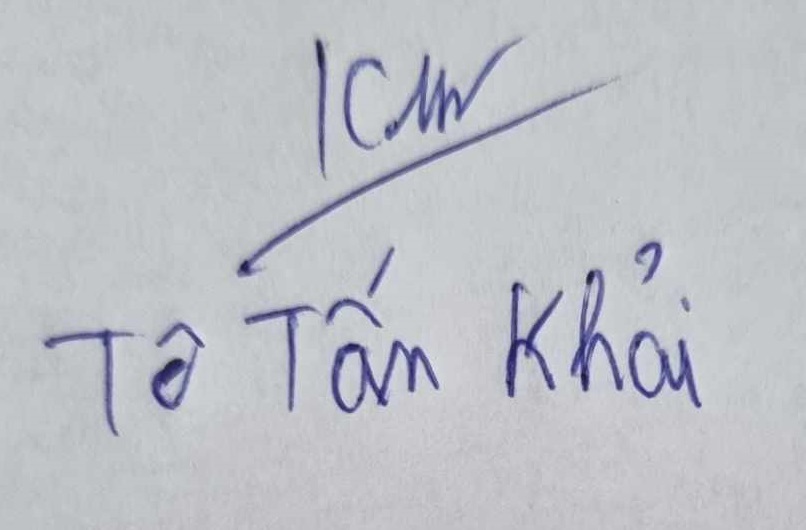 Tô Tấn Khải